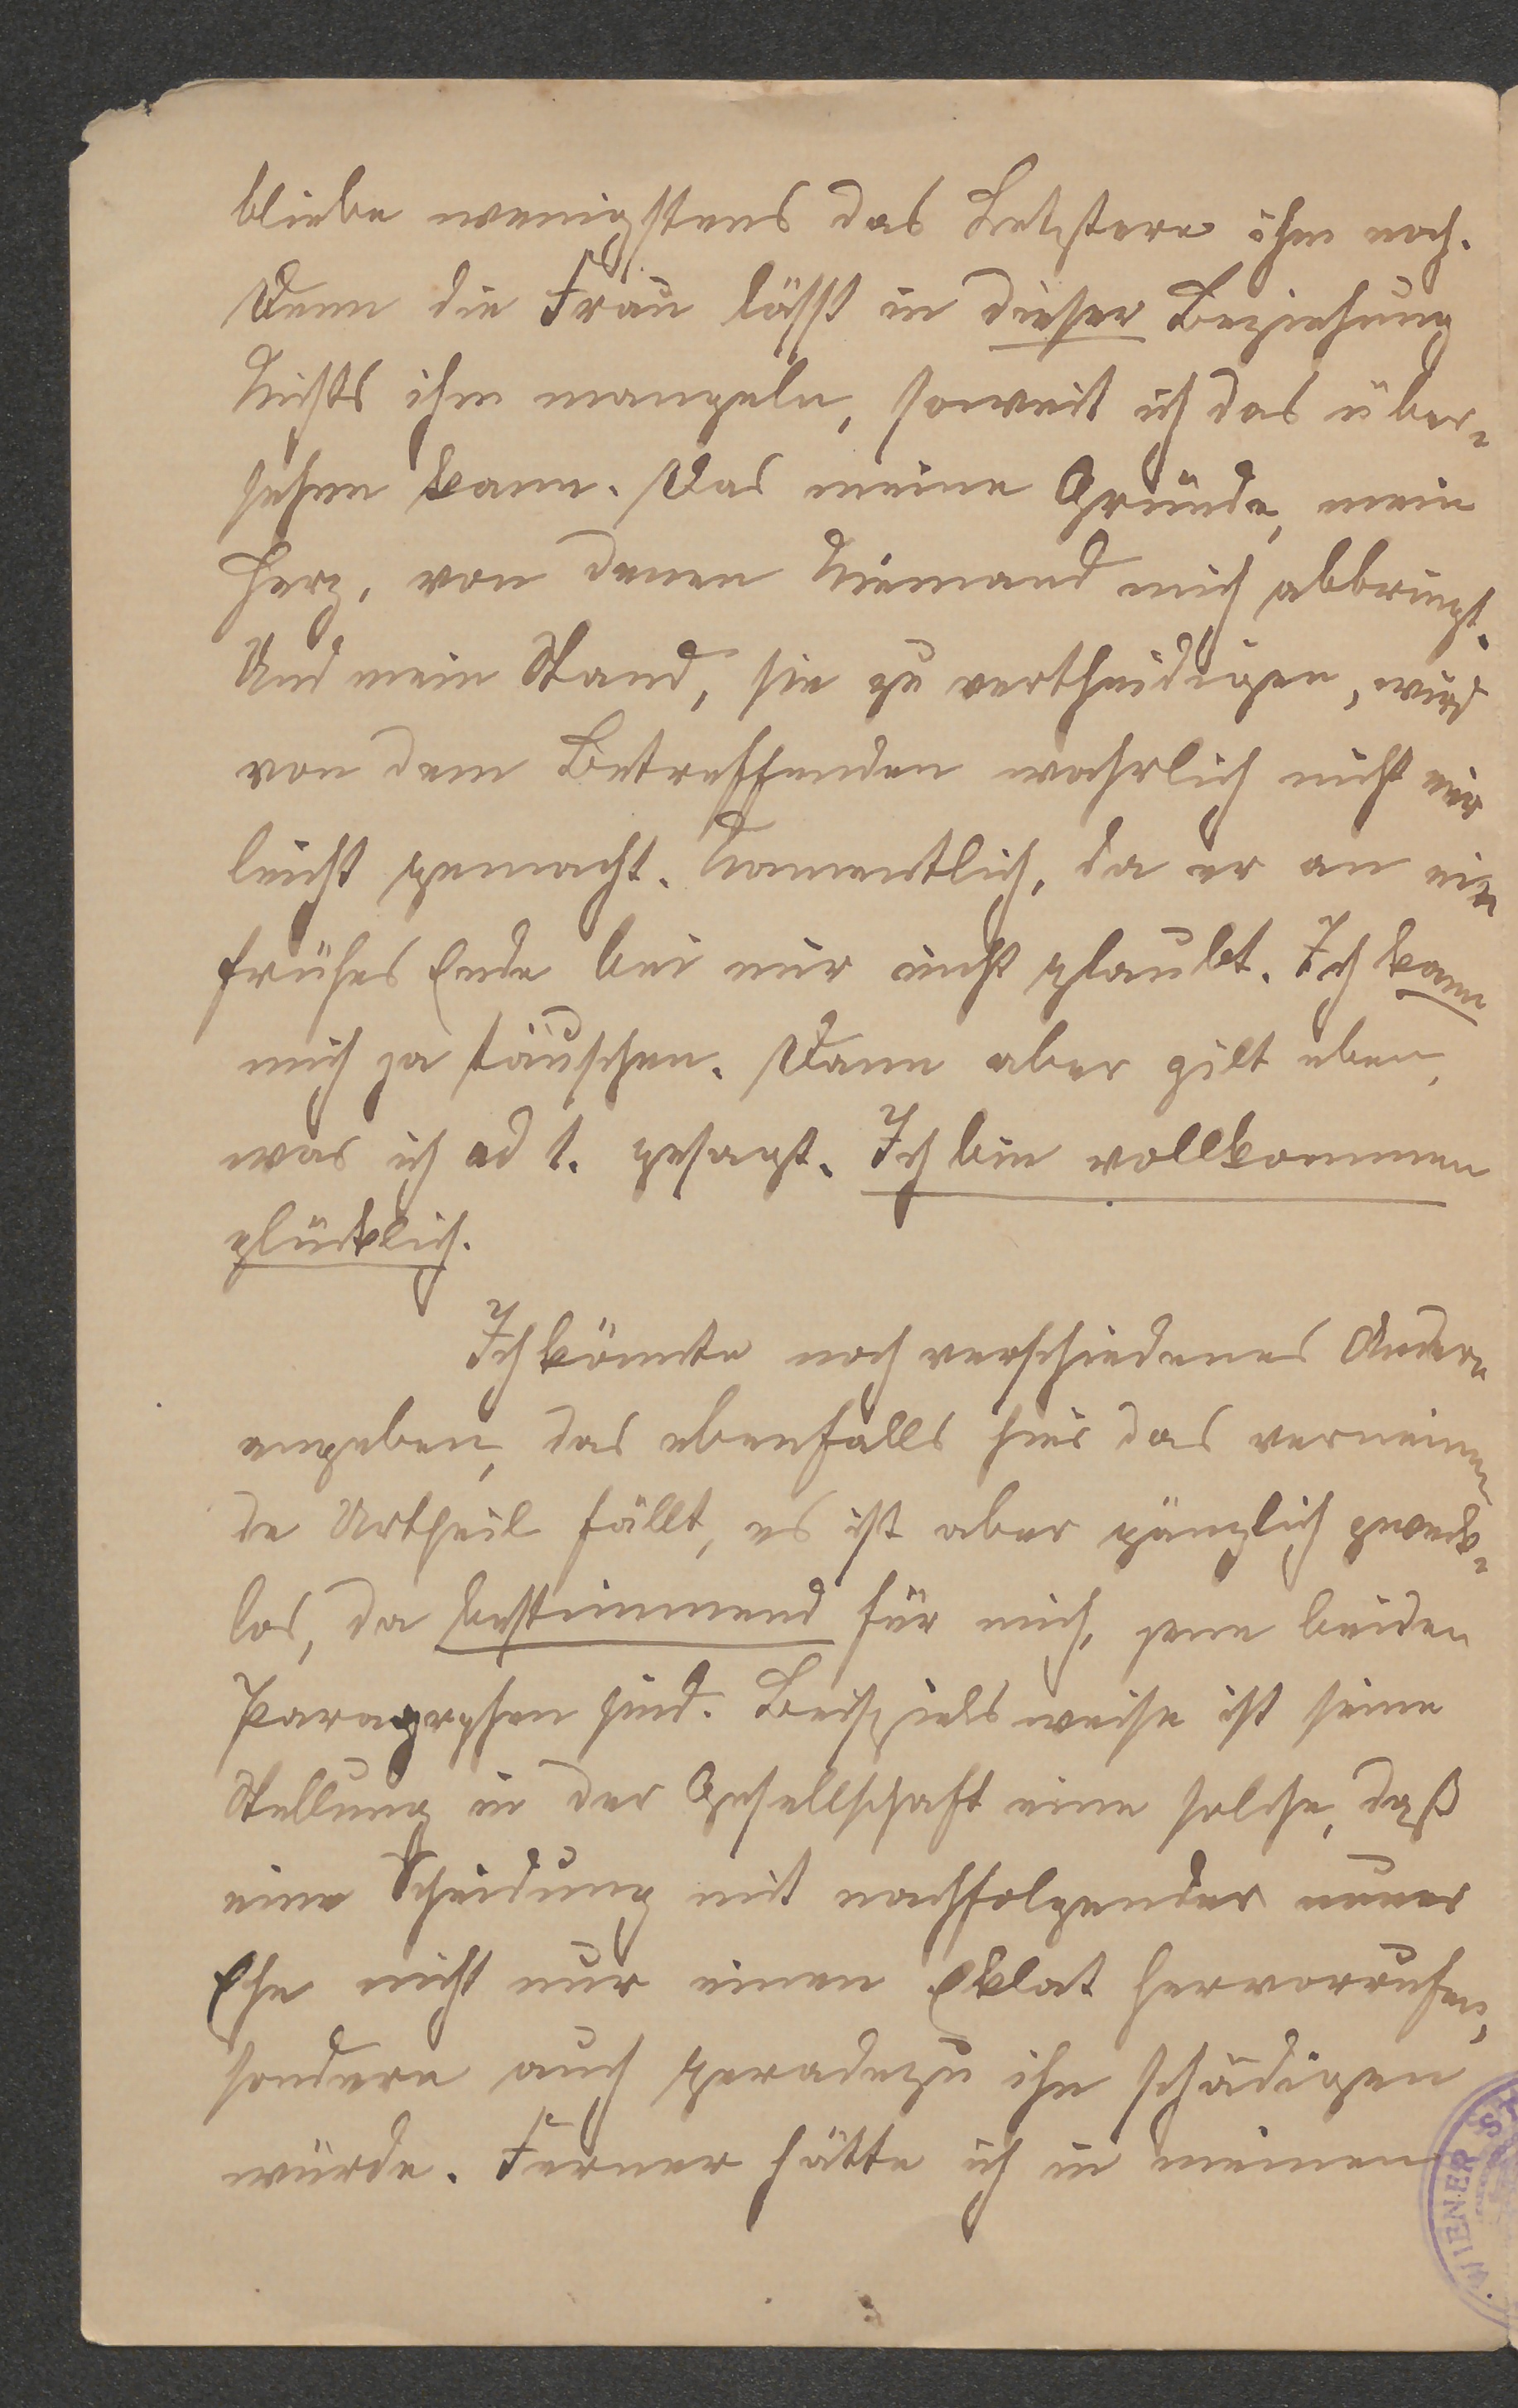 bliebe wenigstens das Letztere ihm noch.
Denn die Frau lässt in dieser Beziehung
Nichts ihm mangeln, soweit ich das über-
sehen kann. Das meine Gründe, mein
Herz, von denen Niemand mich abbringt.
Und mein Stand, sie zu vertheidigen, wird
von dem Betreffenden wahrlich nicht mir
leicht gemacht. Namentlich, da er an ein
frühes Ende bei mir nicht glaubt. Ich kann
mich ja täuschen. Dann aber gilt eben,
was ich ad 1. gesagt. Ich bin vollkommen
glücklich.
Ich könnte noch verschiedenes Andere
angeben, das ebenfalls hier das verneinen
de Urtheil fällt, es ist aber gänzlich zweck-
los, da bestimmend für mich, jene beiden
Paragrphen sind. Beispielsweise ist seine
Stellung in der Gesellschaft eine solche, daß
eine Scheidung mit nachfolgender neuer
Ehe nicht nur einen Eklat hervorrufen,
sondern auch geradezu ihn schädigen
würde. Ferner hätte ich in meinen
WIENER ST